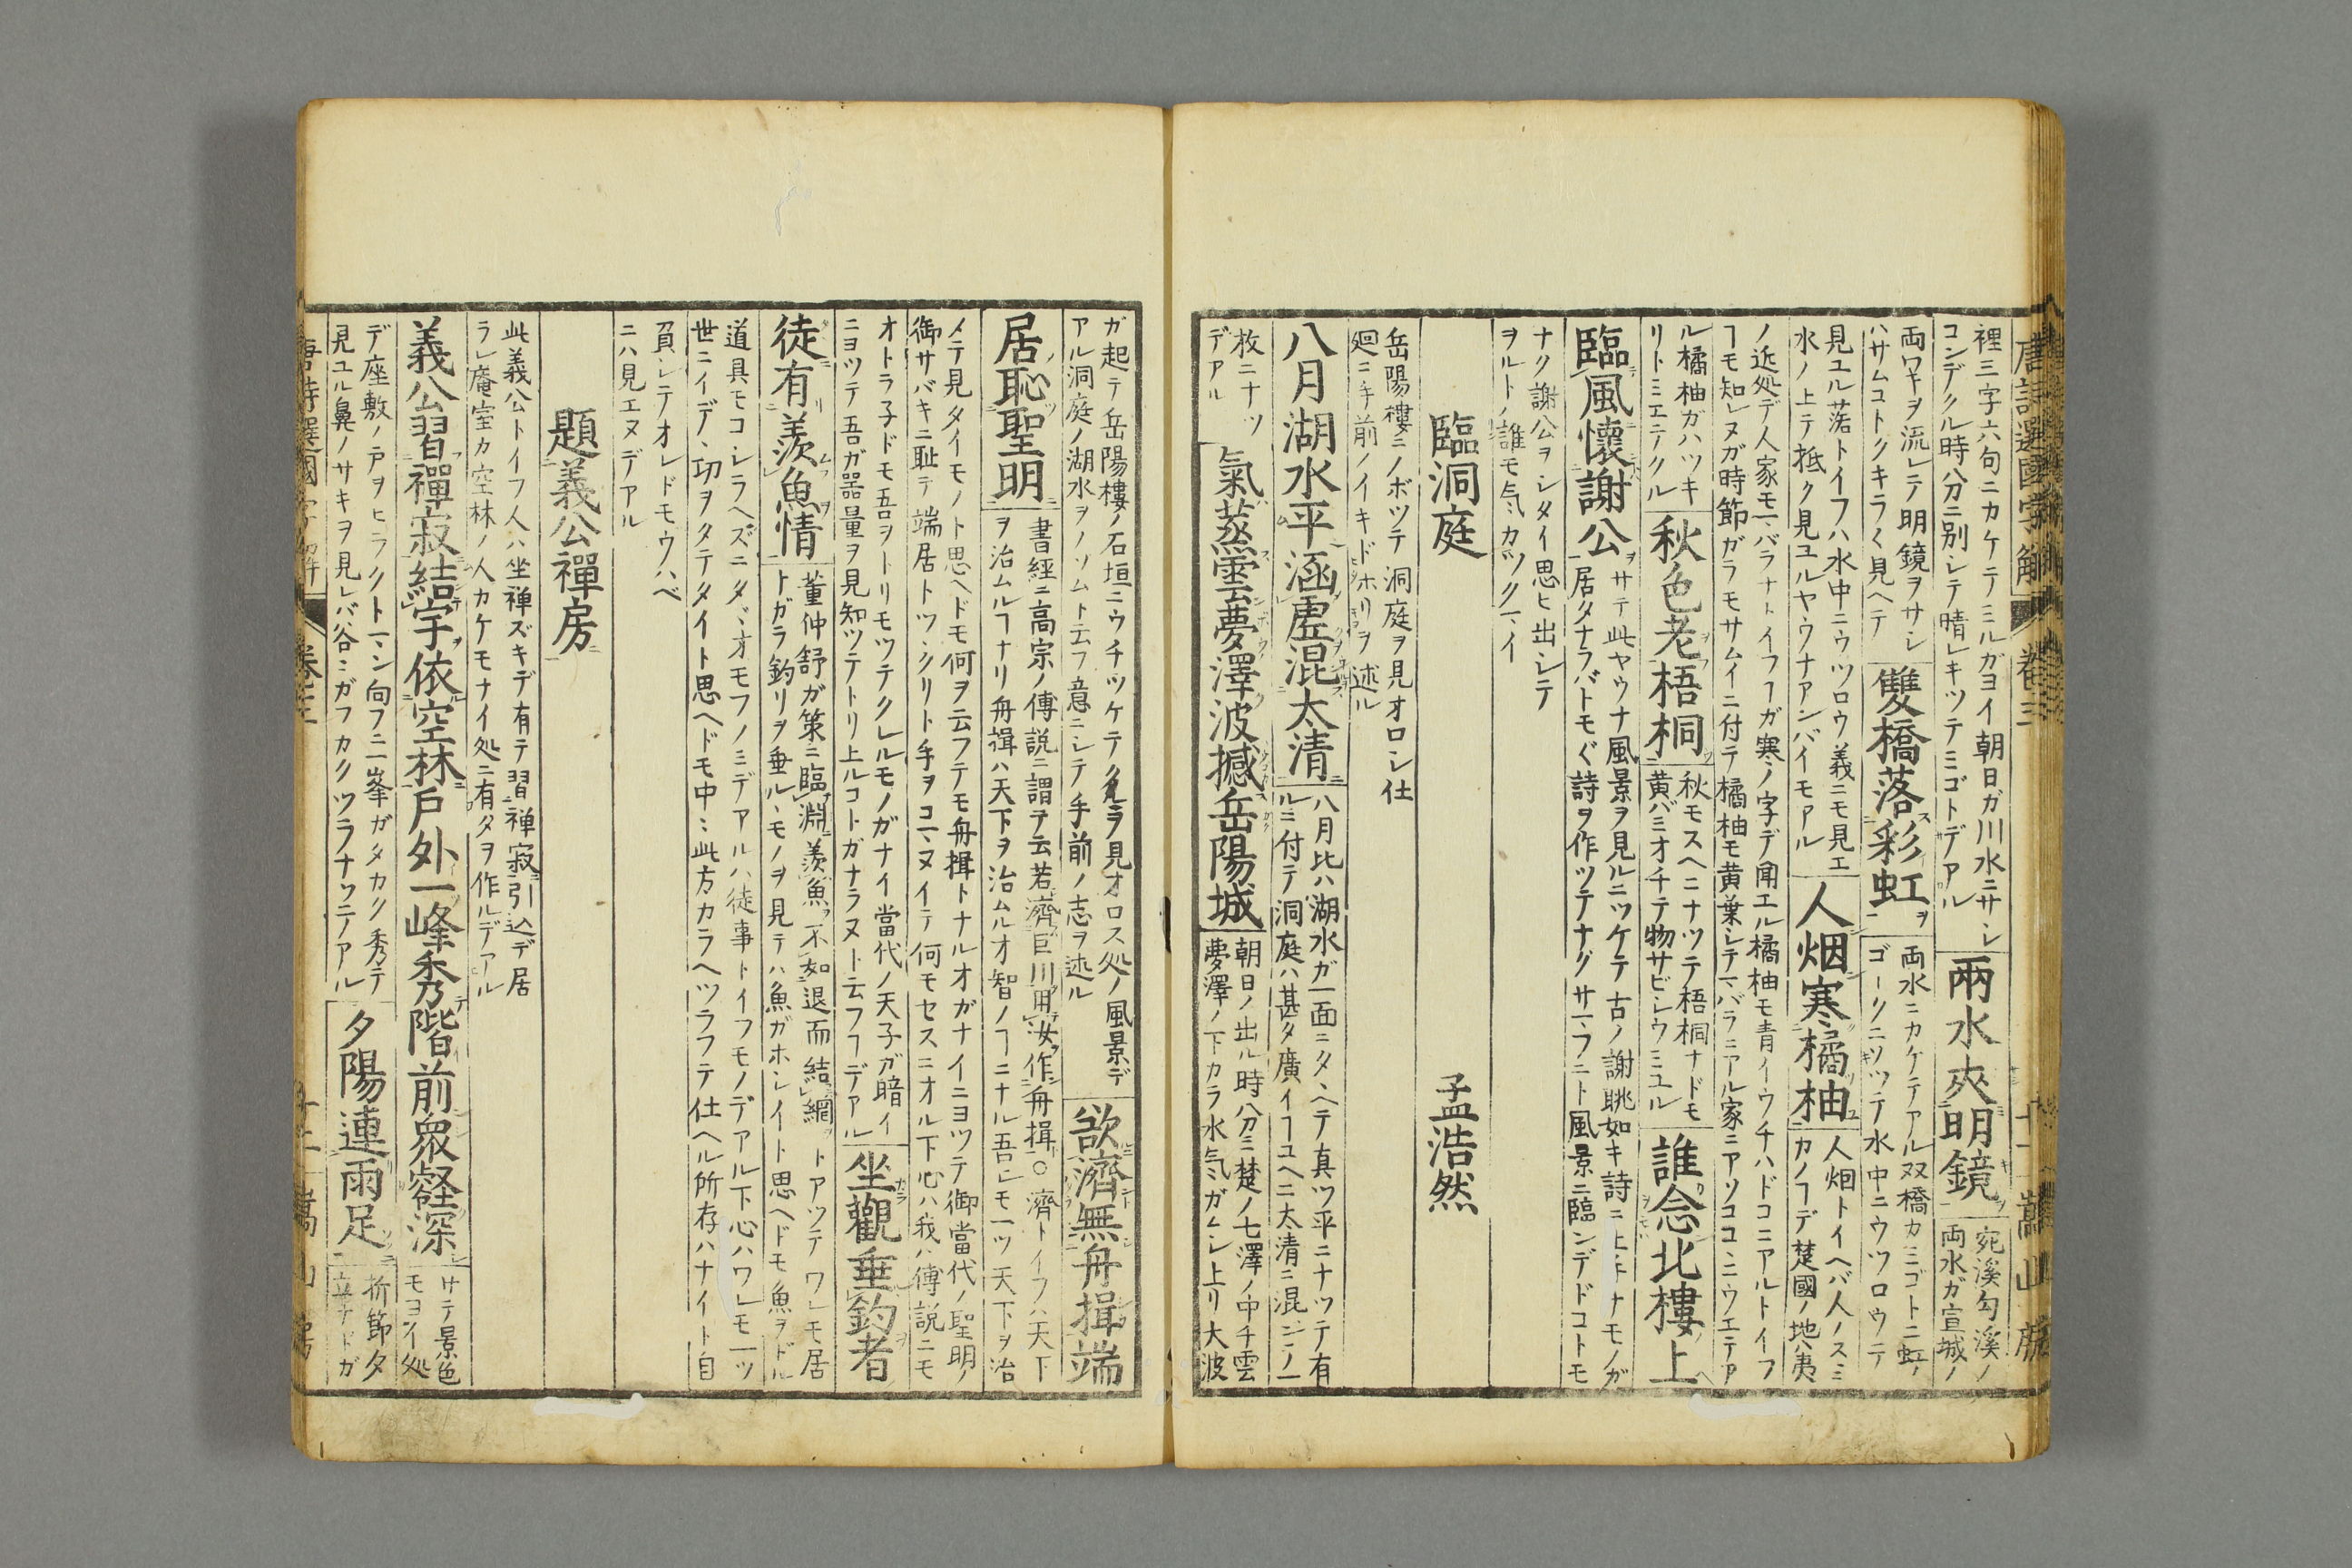 唐詩選國字解 巻三 十一 嵩山房
裡三字六句ニカケテミルガヨイ朝日ガ川水ニサシ
コンデクル時分ニ別シテ晴レキツテミゴトデアル
兩水夾明鏡
宛溪勾溪ノ
両水ガ宣城ノ
両ワキヲ流レテ明鏡ヲサシ
ハサムコトクキラ〱見ヘテ
雙橋落彩虹
両水ニカケテアル双橋カミゴトニ虹ノ
ゴークニソツテ水中ニウツロウテ
見ユル落トイフハ水中ニウツロウ義ニモ見エ
水ノ上テ抵ク見ユルヤウナアンバイモアル
人烟寒橘柚
人烟トイヘバ人ノスミ
カノヿデ楚國ノ地ハ夷
ノ近処デ人家モマバラナトイフヿガ寒ノ字デ聞エル橘柚モ青イウチハドコニアルトイフ
ヿモ知レヌガ時節ガラモサムイニ付テ橘柚モ黄葉シテマバラニアル家ニアソココニウエテア
ル橘柚ガハツキ
リトミエテクル
秋色老梧桐
秋モスヘニナツテ梧桐ナドモ
黄バミオチテ物サビシウミユル
誰念北樓上
臨風懷謝公
サテ此ヤウナ風景ヲ見ルニツケテ古ノ謝眺如キ詩ニ上手ナモノガ
居タナラバトモ〲詩ヲ作ツテナグサマフニト風景ニ臨ンデドコトモ
ナク謝公ヲシタイ思ヒ出シテ
ヲルトノ誰モ気カツクマイ
臨洞庭 孟浩然
岳陽樓ニノボツテ洞庭ヲ見オロシ仕
廻ニ手前ノイキドホリヲ述ル
八月湖水平涵虛混太清
八月比ハ湖水ガ一面ニタヽヘテ真ツ平ニナツテ有
ルニ付テ洞庭ハ甚タ廣イヿユヘニ太清ニ混ジノ一
枚ニナツ
デアル
氣蒸雲夢澤波撼岳陽城
朝日ノ出ル時分ニ楚ノ七澤ノ中チ雲
夢澤ノ下カラ水気ガムシ上リ大波
ガ起テ岳陽樓ノ石垣ニウチツケテ ラ見オロス処ノ風景デ
アル洞庭ノ湖水ヲノソムト云フ意ニシテ手前ノ志ヲ述ル
欲濟無舟揖端
居恥聖明
書經ニ高宗ノ傳説ニ謂テ云若濟巨川用汝作舟揖○濟トイフハ天下
ヲ治ムルヿナリ舟揖ハ天下ヲ治ムルオ智ノヿニナル吾レモ一ツ天下ヲ治
メテ見タイモノト思ヘドモ何ヲ云フテモ舟揖トナルオガナイニヨツテ御當代ノ聖明ノ
御サバキニ耻テ端居トツヽクリト手ヲコマヌイテ何モセスニオル下心ハ我ハ傳説ニモ
オトラ子ドモ吾ヲトリモツテクレルモノガナイ當代ノ天子ガ暗イ
ニヨツテ吾ガ器量ヲ見知ツテトリ上ルコトガナラヌト云フヿデアル
坐觀垂釣者
徒有羨魚情
董仲舒ガ策ニ臨淵羨魚不如退而結網トアツテワレモ居
トガラ釣リヲ垂ルヽモノヲ見テハ魚ガホシイト思ヘドモ魚ヲドル
道具モコシラヘズニタヽオモフノミデアルハ徒事トイフモノデアル下心ハワレモ一ツ
世ニイデヽ功ヲタテタイト思ヘドモ中ニ此方カラヘツラフテ仕ヘル所存ハナイト自
負シテオレドモウハベ
ニハ見エヌデアル
題義公禪房
此義公トイフ人ハ坐禅ズキデ有テ習禅寂引込デ居
ラレ庵室カ空林ノ人カケモナイ処ニ有タヲ作ルデアル
義公習禪寂結宇依空林戶外一峰秀階前衆壑深
サテ景色
モヨイ処
デ座敷ノ戸ヲヒラクトマン向フニ一峯ガタカク秀テ
見ユル鼻ノサキヲ見レバ谷ニガフカクツラナツテアル
夕陽連雨足
折節夕
立チドガ
唐詩選國字解 巻三 十二 嵩山房